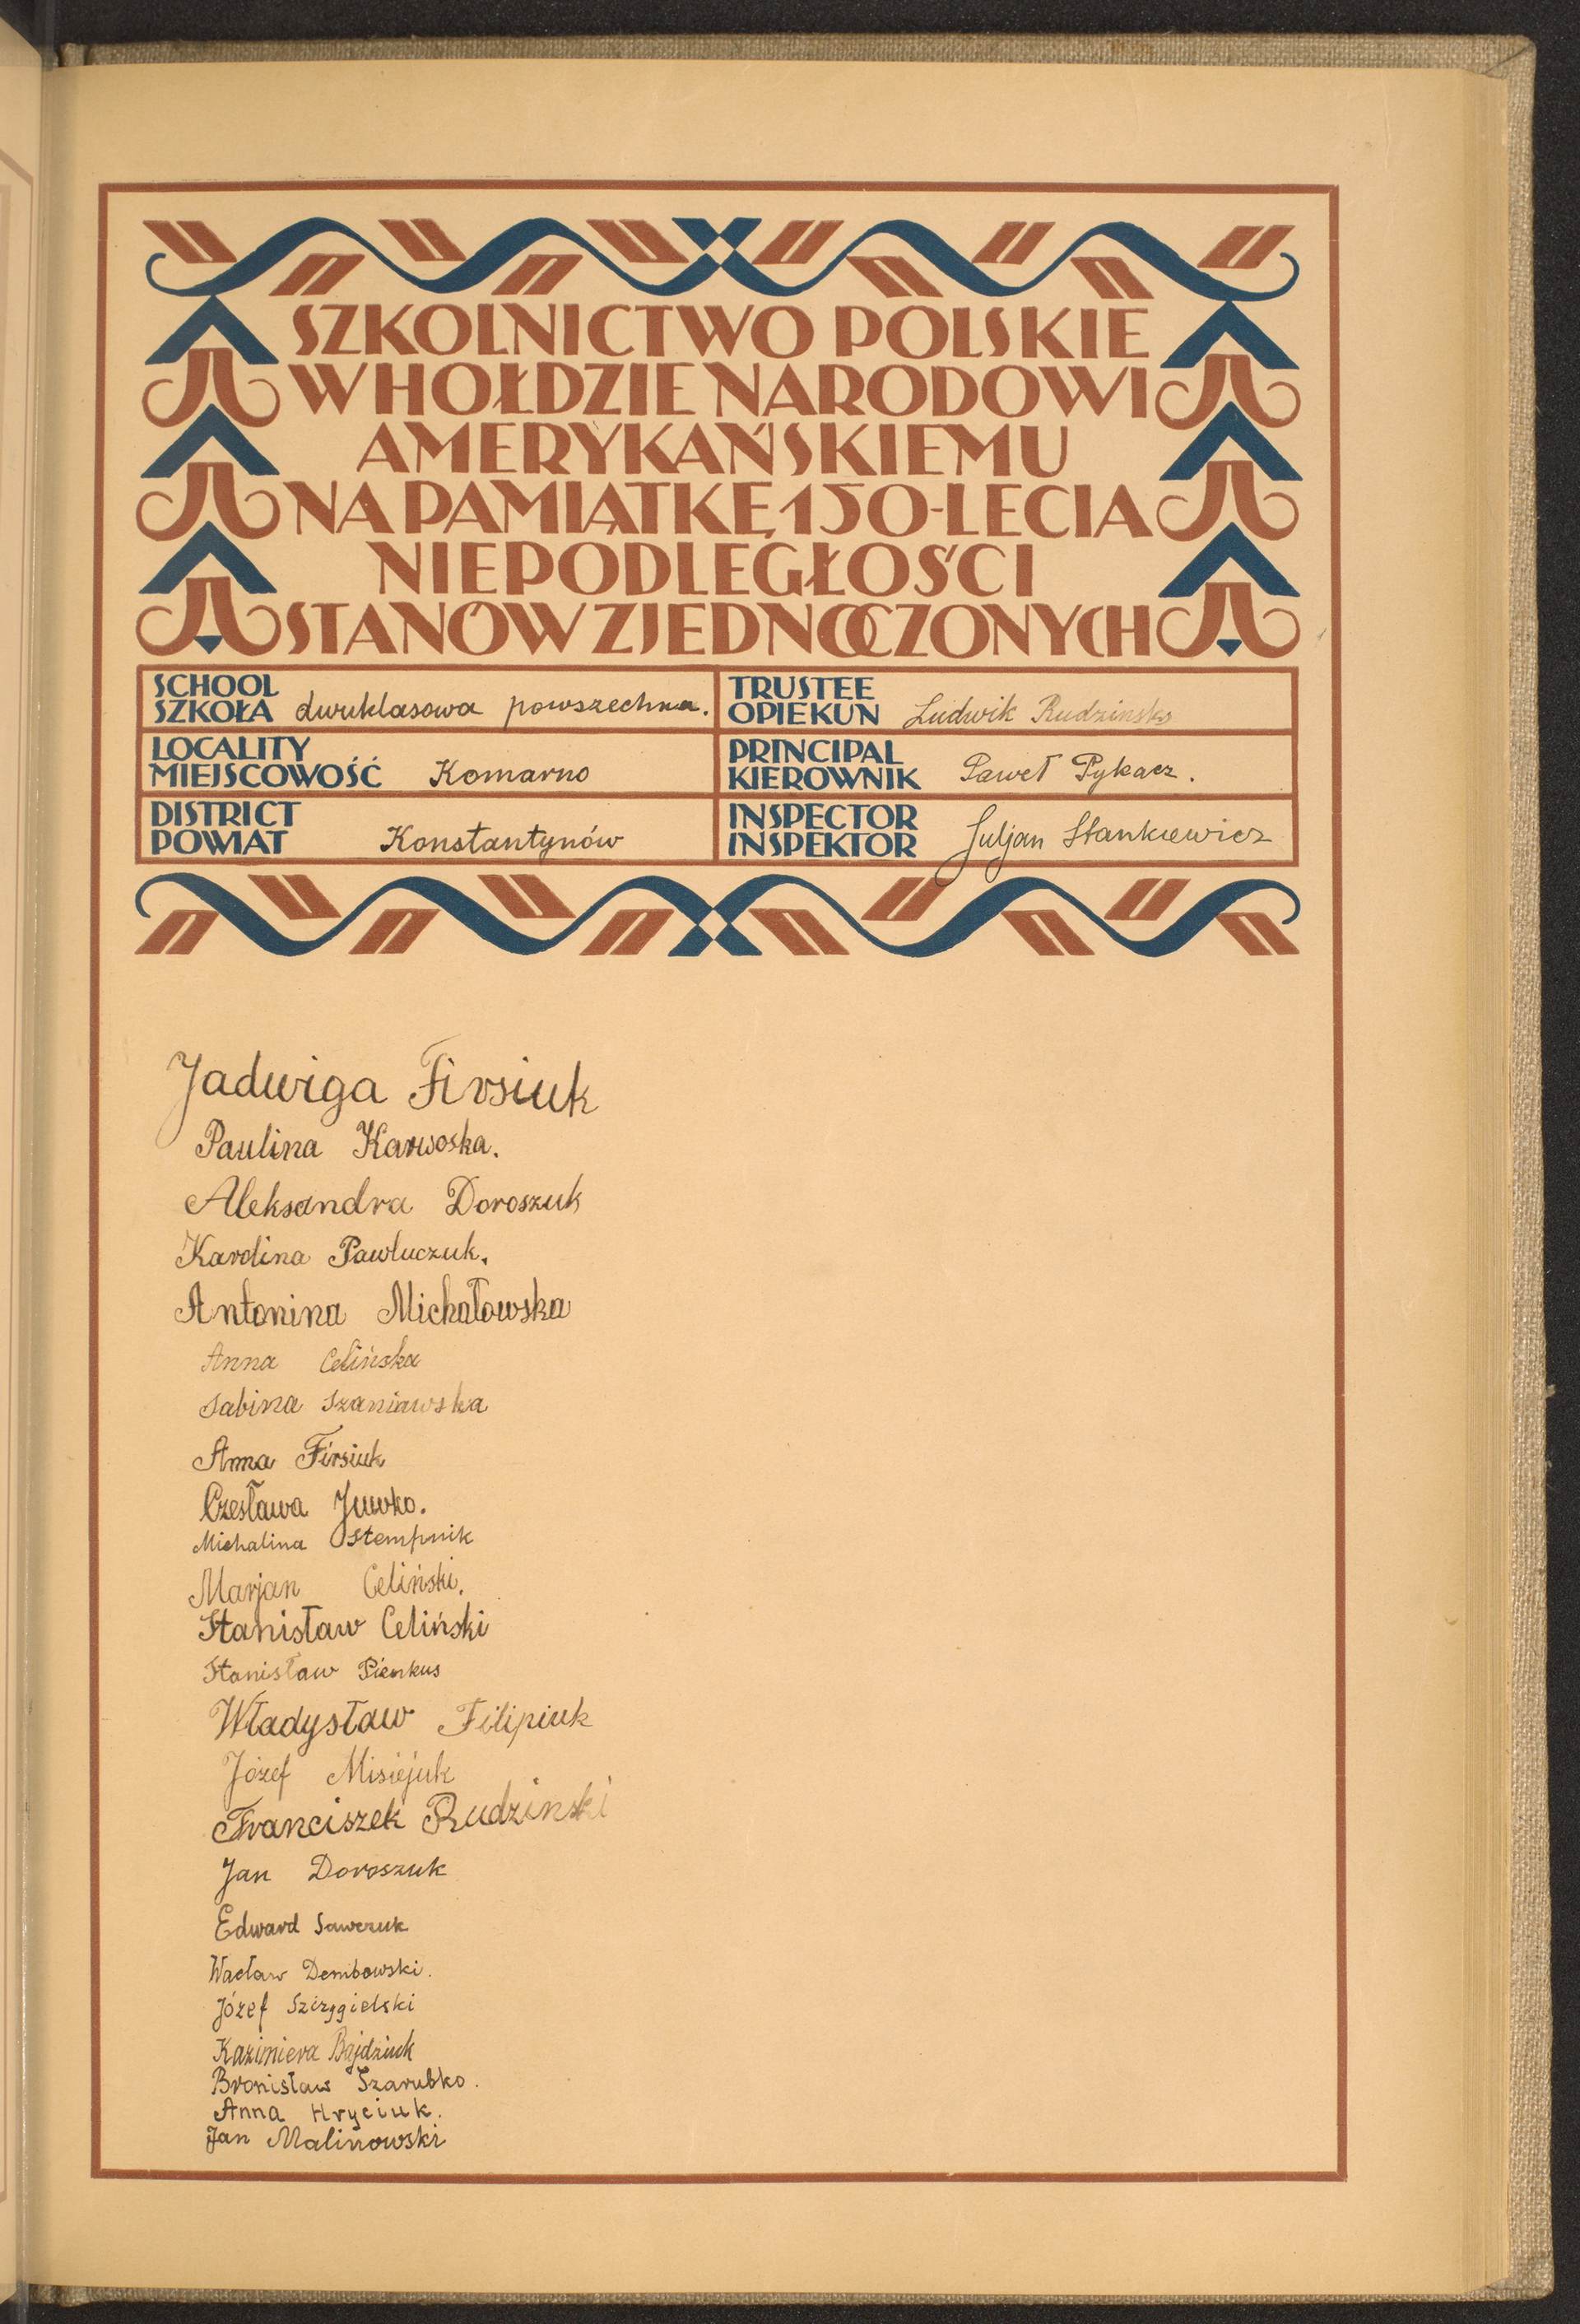 SZKOLNICTWO POLSKIE
W HOŁDZIE NARODOWI
AMERYKAŃSKIEMU
NA PAMIĄTKĘ 150-LECIA
NIEPODLEGŁOŚCI
STANÓW ZJEDNOCZONYCH
SCHOOL
SZKOŁA dwuklasowa powszechna.
TRUSTEE
OPIEKUN Ludwik Rudzinski
LOCALITY
MIEJSCOWOŚĆ Komarno
PRINCIPAL
KIEROWNIK Paweł Pykacz.
DISTRICT
POWIAT Konstantynów
INSPECTOR
INSPEKTOR Juljan Stankiewicz
Jadwiga Firsiuk
Paulina Karwoska.
Aleksandra Doroszuk
Karolina Pawluczuk.
Antonina Michałowska
Anna Celińska
Sabina Szaniawska
Anna Firsiuk
Czesława
Michalina Stempnik
Marjan Celiński.
Stanisław Celiński
Stanisław Pienkus
Władysław Filipiuk
Józef Misiejuk
Franciszek Rudzinski
Jan Doroszuk
Edward Sawczuk
Wacław Dembowski.
Józef
Kazimiera Bajdziuk
Bronisław Szarubko.
Anna Hryciuk.
Jan Malinowski